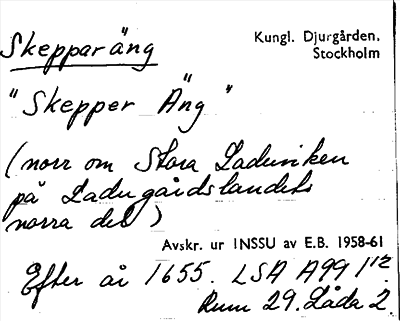 Skepparäng
Kungl. Djurgården,
Stockholm
"Skepper Äng"
(norr om Stora Laduviken
på Ladugårdslandets
norra del)
Avskr. ur INSSU av E.B. 1958-61
Efter år 1655. LSA A99 1¹²
Rum 29. Låda 2.